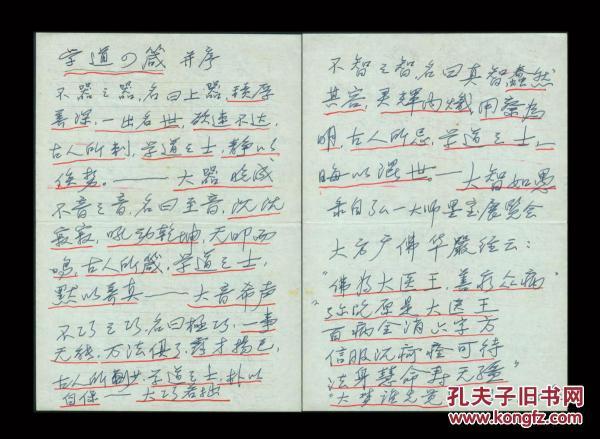 学道四箴 并序
不器之器,名曰上器,积厚
养深,一出名世,欲速不达,
古人所刺,学道之士,静以
俟势。——大器晚成
不音之音,名曰至音,沉沉
寂寂,吼动乾坤,无叩而
鸣,古人所箴,学道之士,
默以养真——大音希声
不巧之巧,名曰极巧,一事
无能,万法俱了,露才扬己,
古人所 学道之士,朴以
自保——大巧若拙
不智之智,名曰真智,蠢然
其容,灵辉内炽,用察为
明,古人所忌,学道之士,
晦以混世。——大智如愚
录自弘一大师墨宝展览会
大方广佛华严经云:
"佛为大医王,善疗众病"
弥陀原是大医王
百病全消六字方
信服沉疴痊可待
法身慧命寿无疆"
"大梦谁先觉
孔夫子旧书网
www.kongfz.com